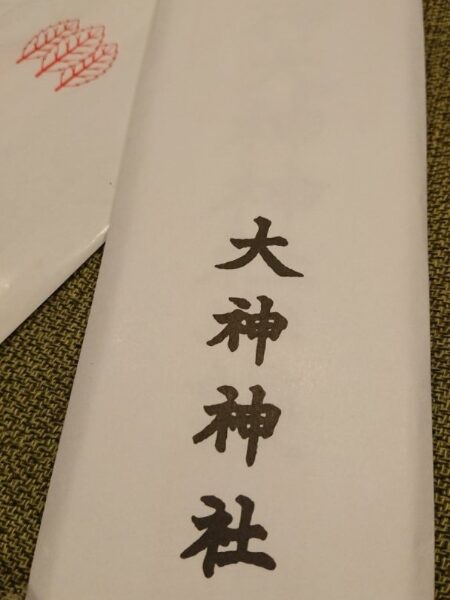 大神神社